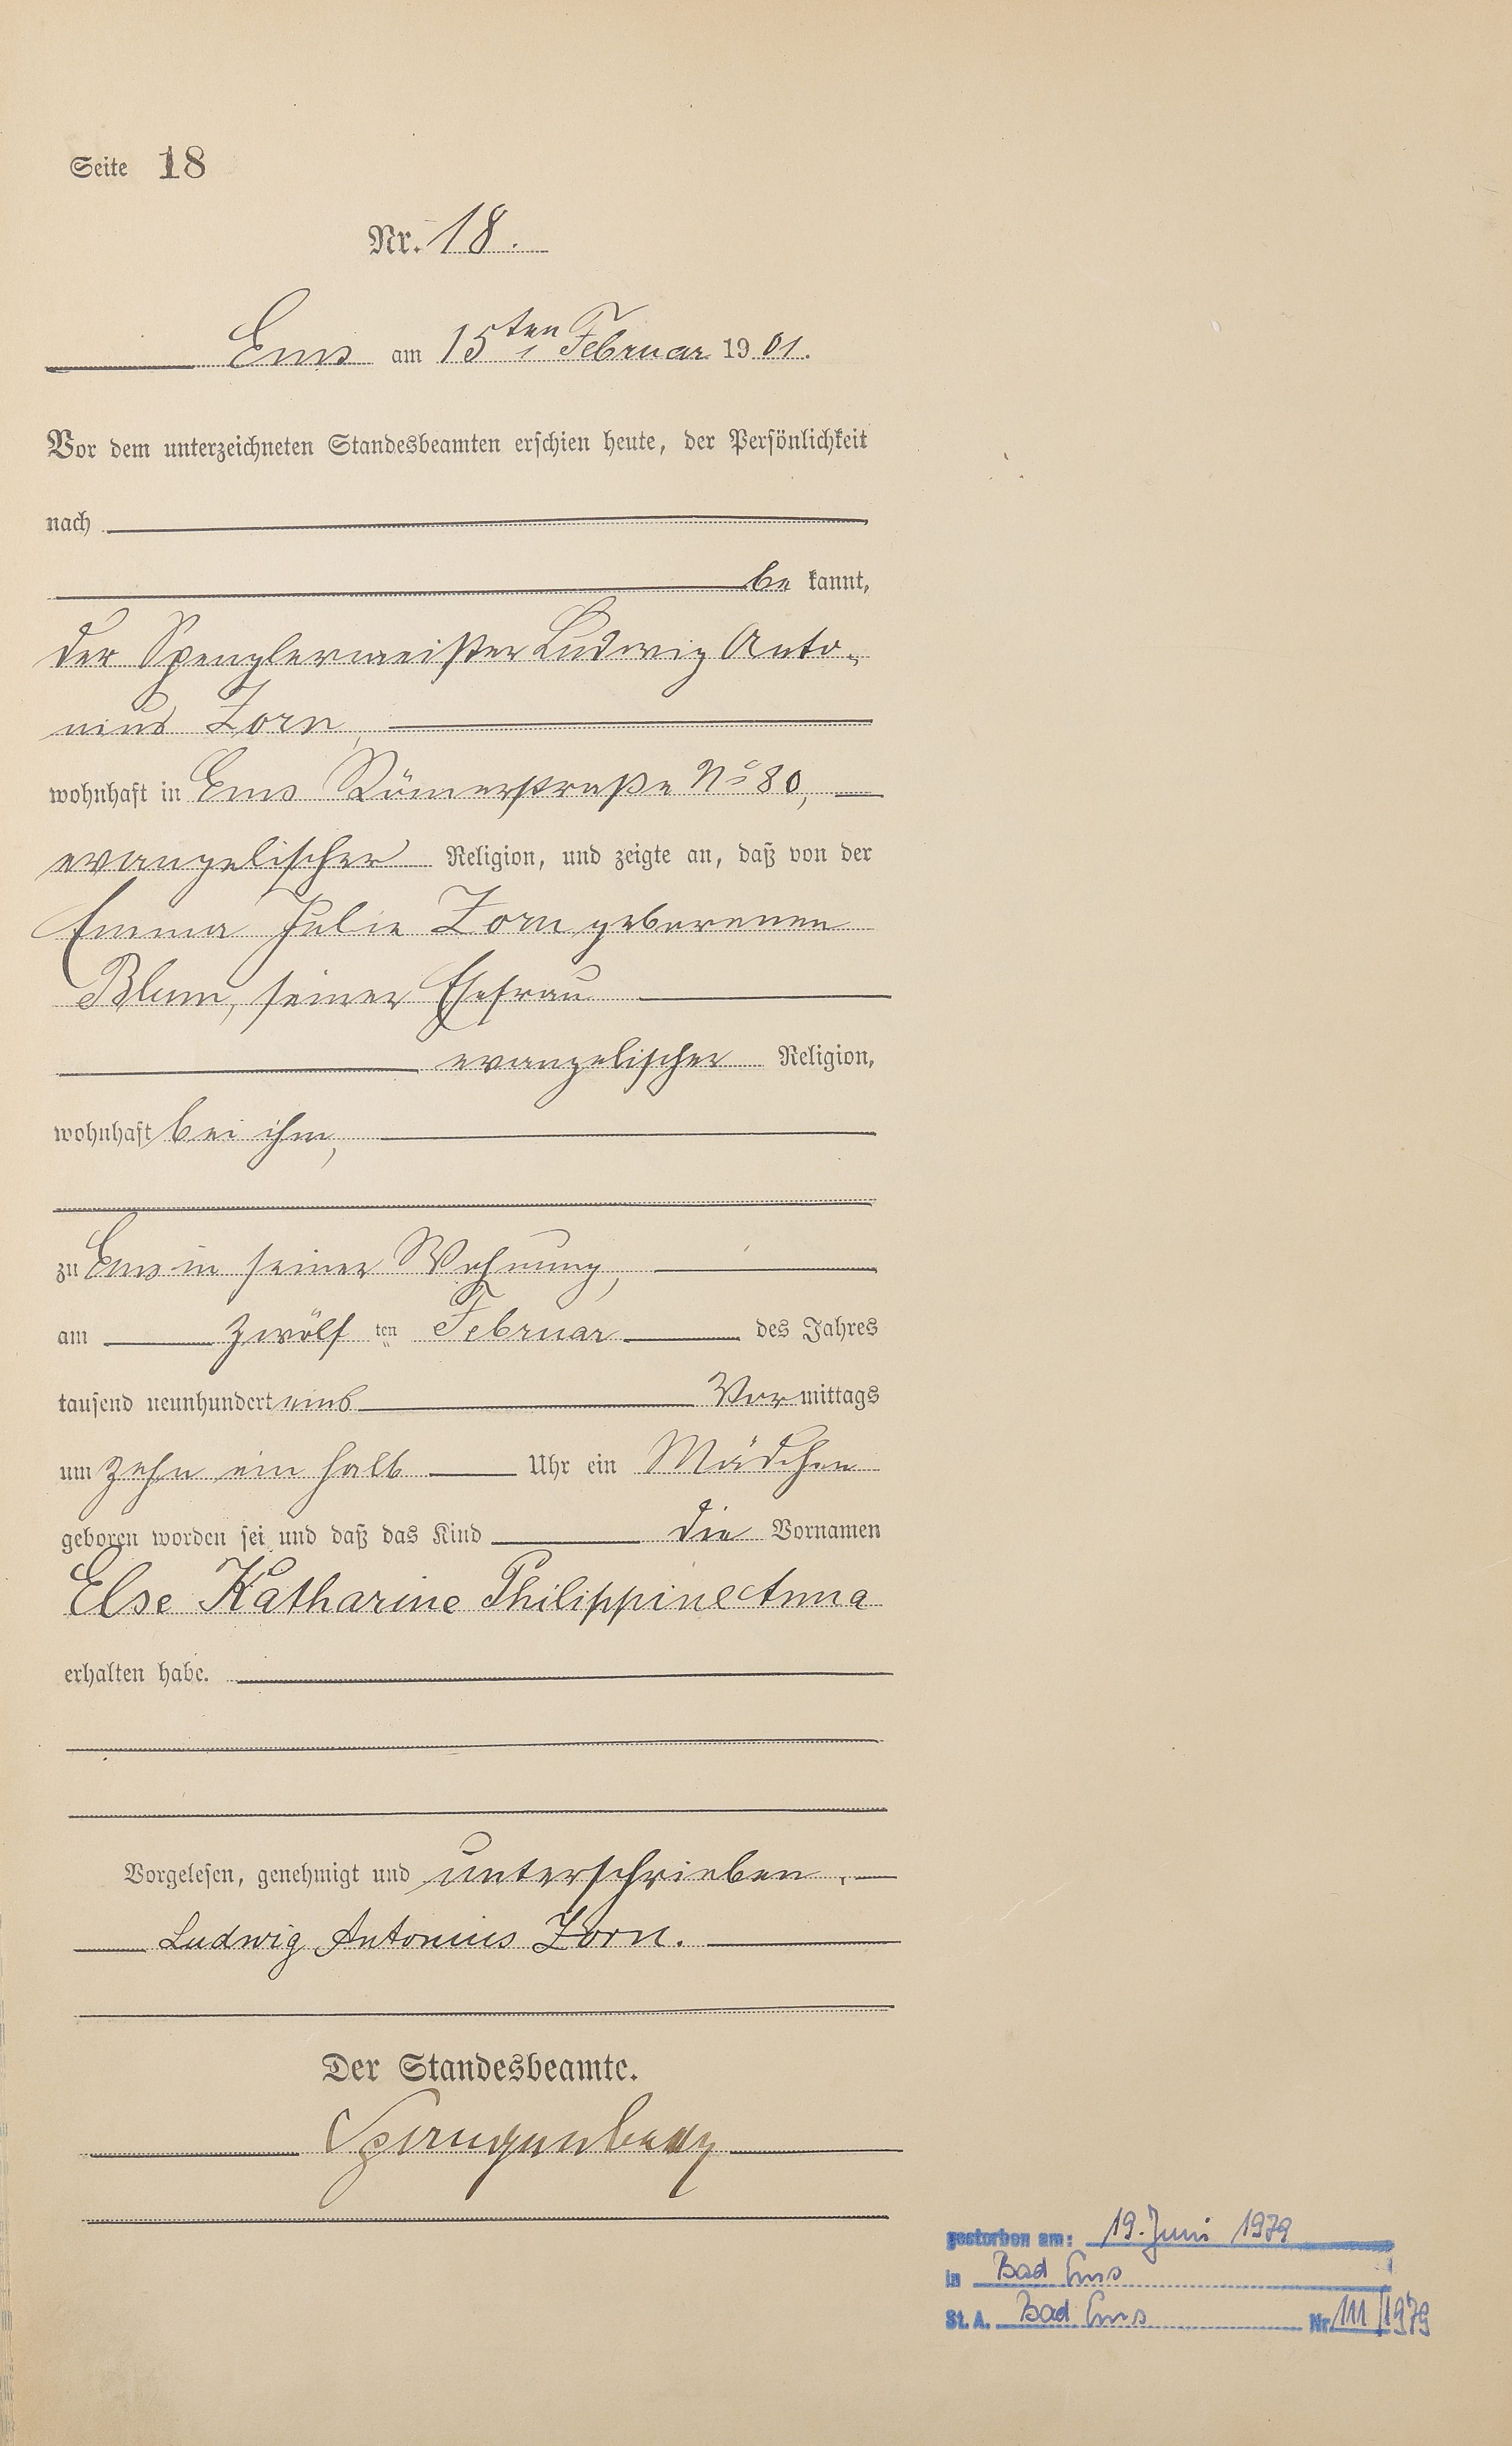 Seite 18
Nr. 18.
Ems am 15ten Februar 1901.
Vor dem unterzeichneten Standesbeamten erschien heute, der Persönlichkeit
nach
be kannt,
der Spenglermeister Ludwig Anto-
nius Zorn,
wohnhaft in Ems Römerstraße No 80,
evangelischer Religion, und zeigte an, daß von der
Emma Julie Zorn geborenen
Blum, seiner Ehefrau
evangelischer Religion,
wohnhaft bei ihm,
zu Ems in seiner Wohnung,
am zwölf ten Februar des Jahres
tausend neunhundert eins Vormittags
um zehn ein halb Uhr ein Mädchen
geboren worden sei und daß das Kind die Vornamen
Else Katharine Philippine Anna
erhalten habe.
Vorgelesen, genehmigt und unterschrieben.
Ludwig Antonius Zorn.
Der Standesbeamte.
gestorben am: 19. Juni 1979
in Bad Ems
St. A. Bad Ems Nr. 111/1979